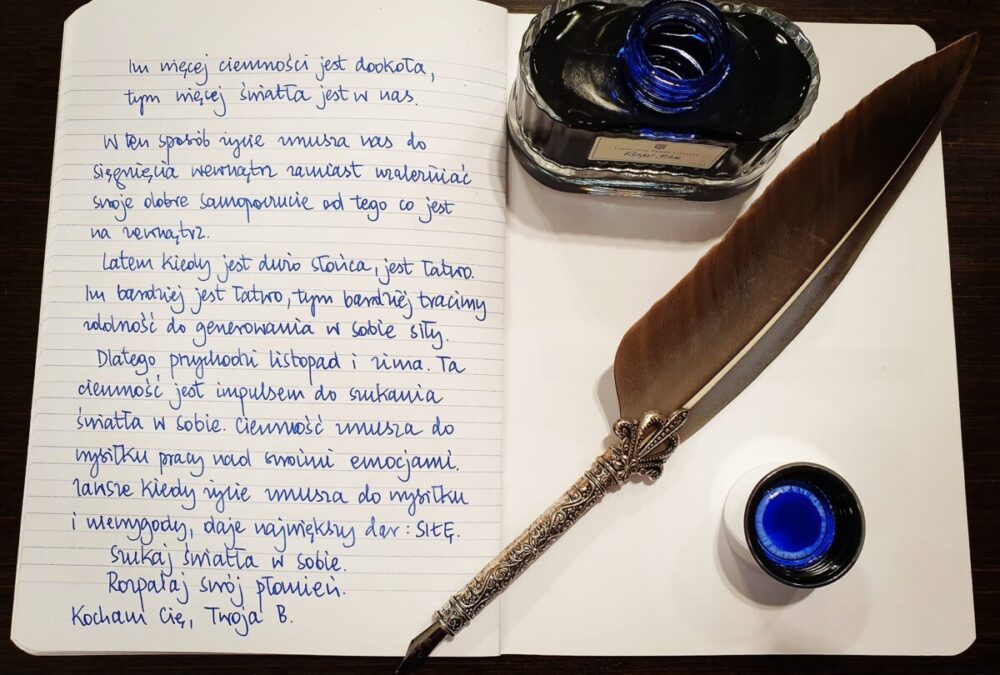 Im więcej ciemności jest dookoła,
tym więcej światła jest w nas.
W ten sposób życie zmusza nas do
sięgnięcia wewnątrz zamiast uzależniać
swoje dobre samopoczucie od tego co jest
na zewnątrz.
Latem kiedy jest dużo słońca, jest łatwo.
Im bardziej jest łatwo, tym bardziej tracimy
zdolność do generowania w sobie siły.
Dlatego przychodzi listopad i zima. Ta
ciemność jest impulsem do szukania
światła w sobie. Ciemność zmusza do
wysiłku pracy nad swoimi emocjami.
Zawsze kiedy życie zmusza do wysiłku
i niewygody, daje największy dar: SIŁĘ.
Szukaj światła w sobie.
Rozpalaj swój płomień.
Kocham Cię, Twoja B.
Royal Blue